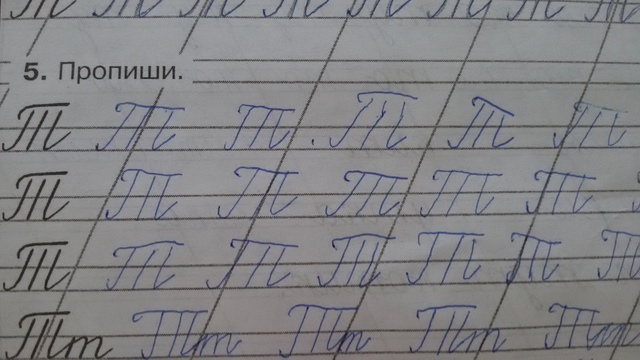 Т Т Т Т Т Т Т
5. Пропиши.
Т Т Т Т Т Т
Т Т Т Т Т Т
Т Т Т Т Т Т Т
Тт Тт Тт Тт Тт